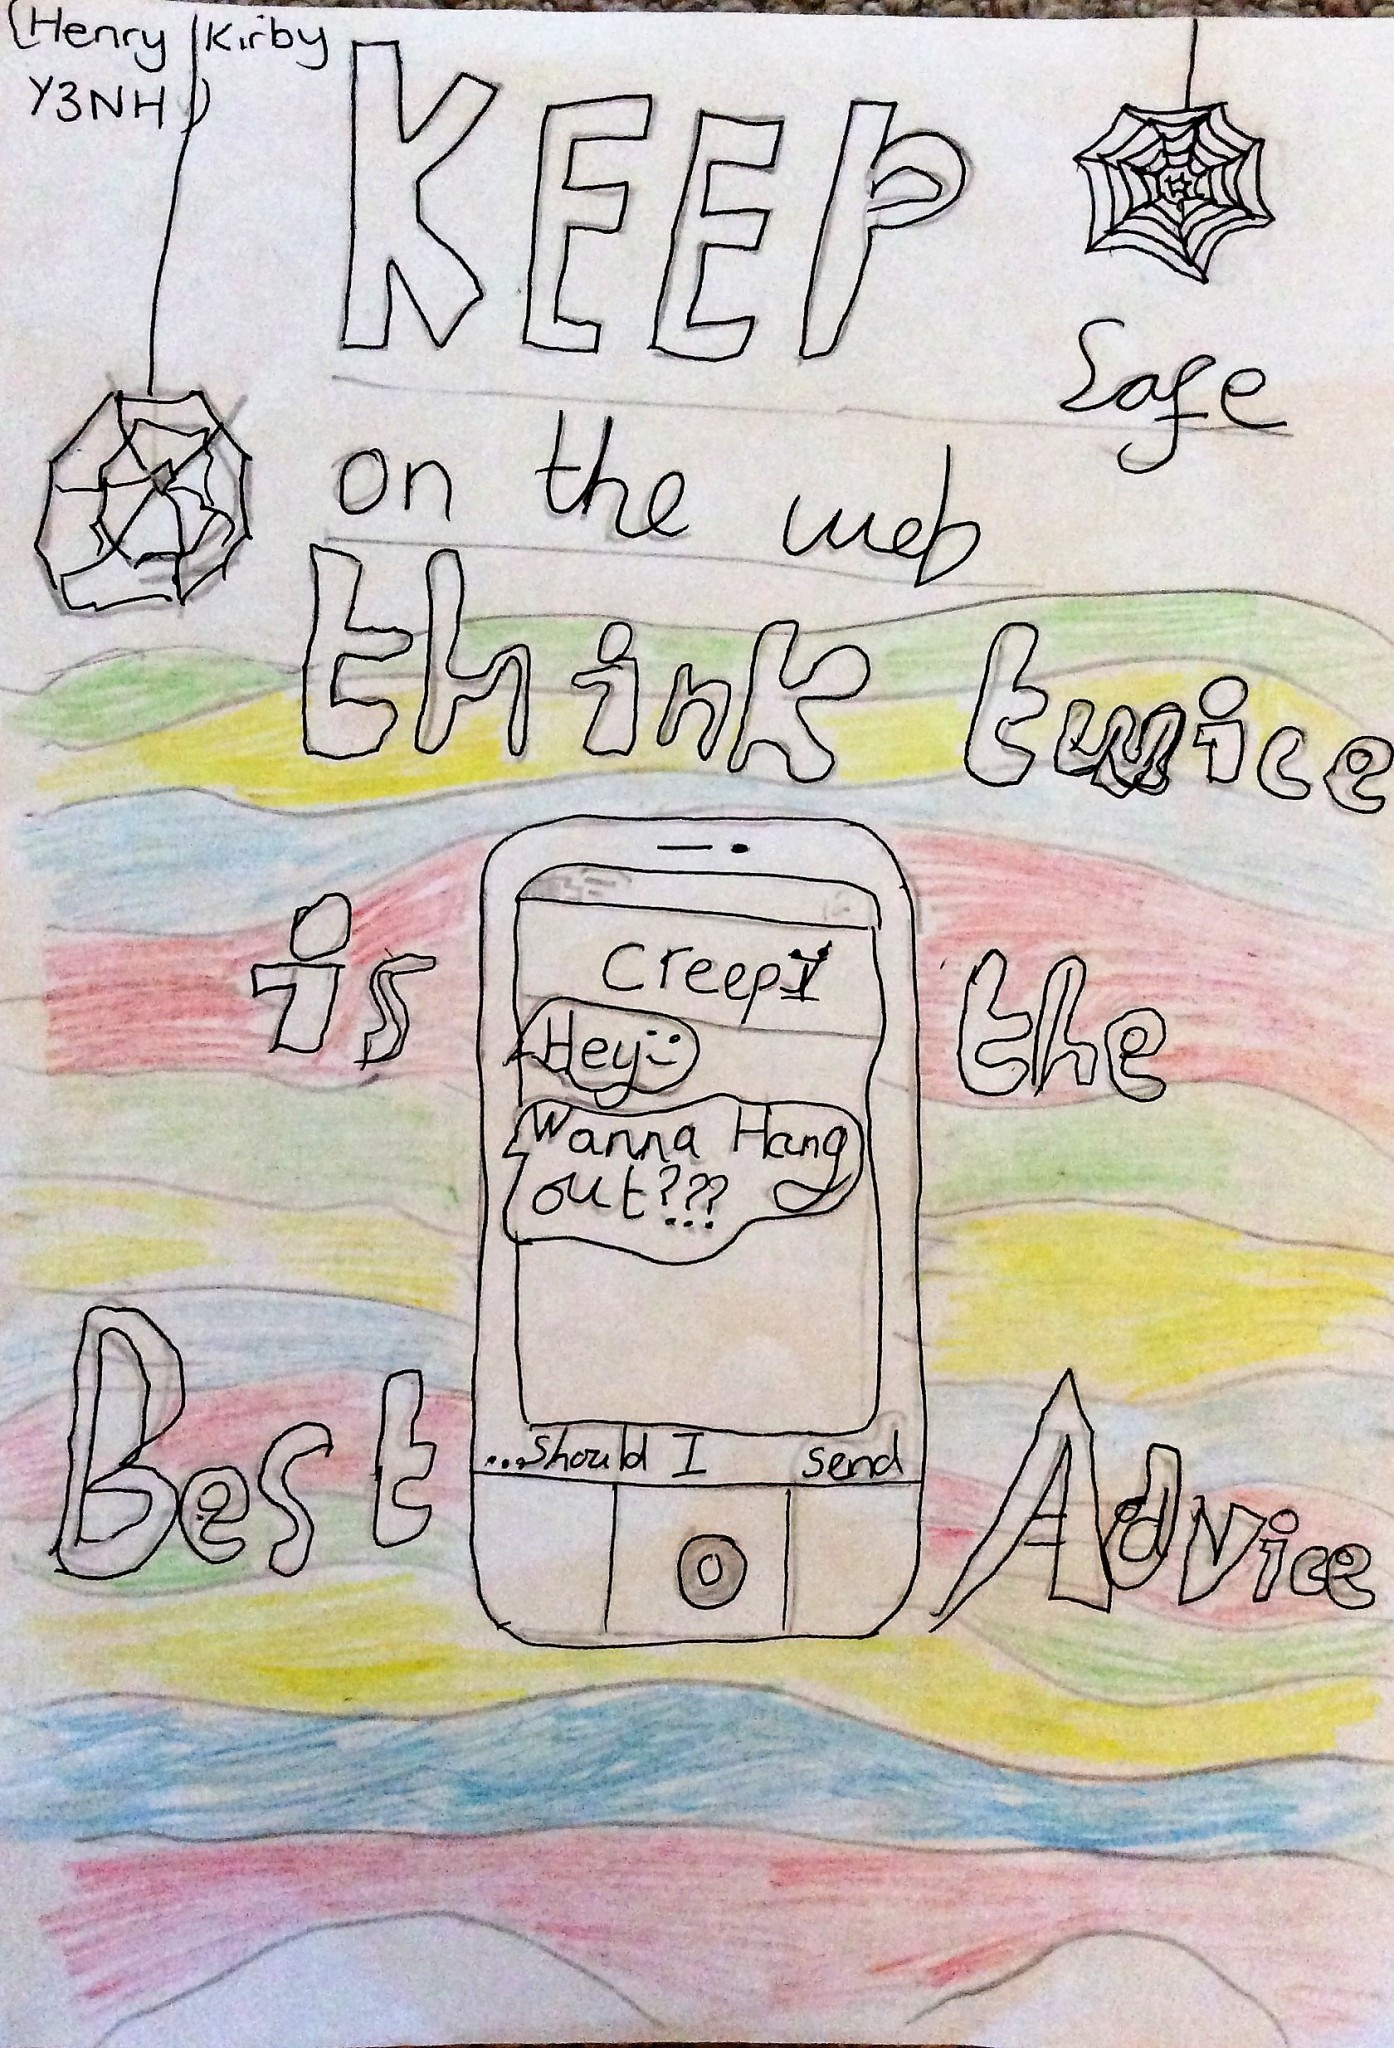 (Henry Kirby
Y3NH)
KEEP
Safe
on the web
think twice
is the
Creepy
Hey
Wanna Hang
out???
...should I send
Best Advice